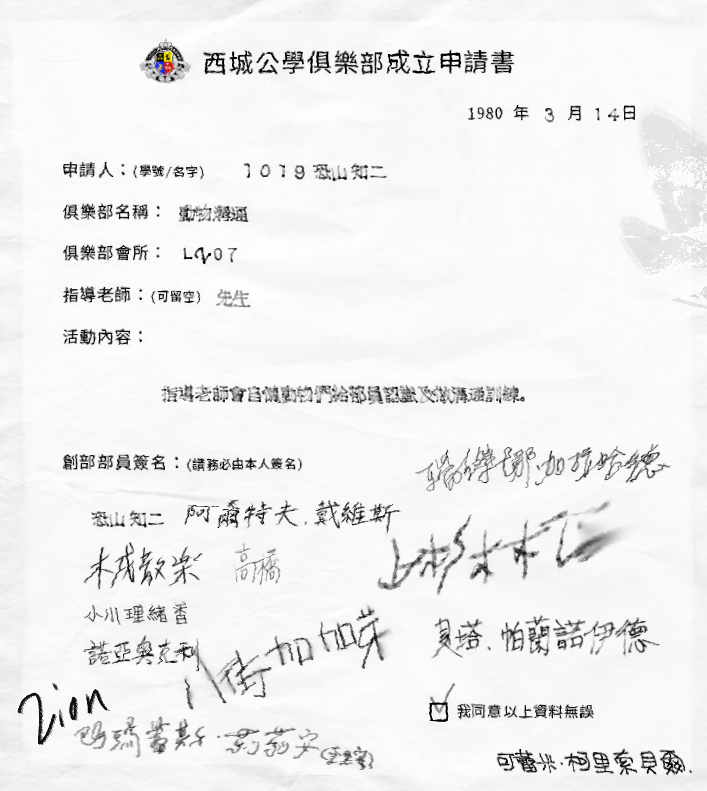 西城公學俱樂部成立申請書
1980 年 3 月 14日
申請人：(學號/名字) 1019 恐山知二
俱樂部名稱： 動物溝通
俱樂部會所： L207
指導老師：(可留空) 先生
活動內容：
指導老師會自備動物們給部員認識及做溝通訓練。
創部部員簽名：(請務必由本人簽名)
恐山知二 阿爾特夫.戴維斯
高橋
小川理緒香
諾亞奧克利
八街加加芽
貝塔、帕蘭諾伊德
Zion
我同意以上資料無誤
可蕾米·柯里索貝爾.